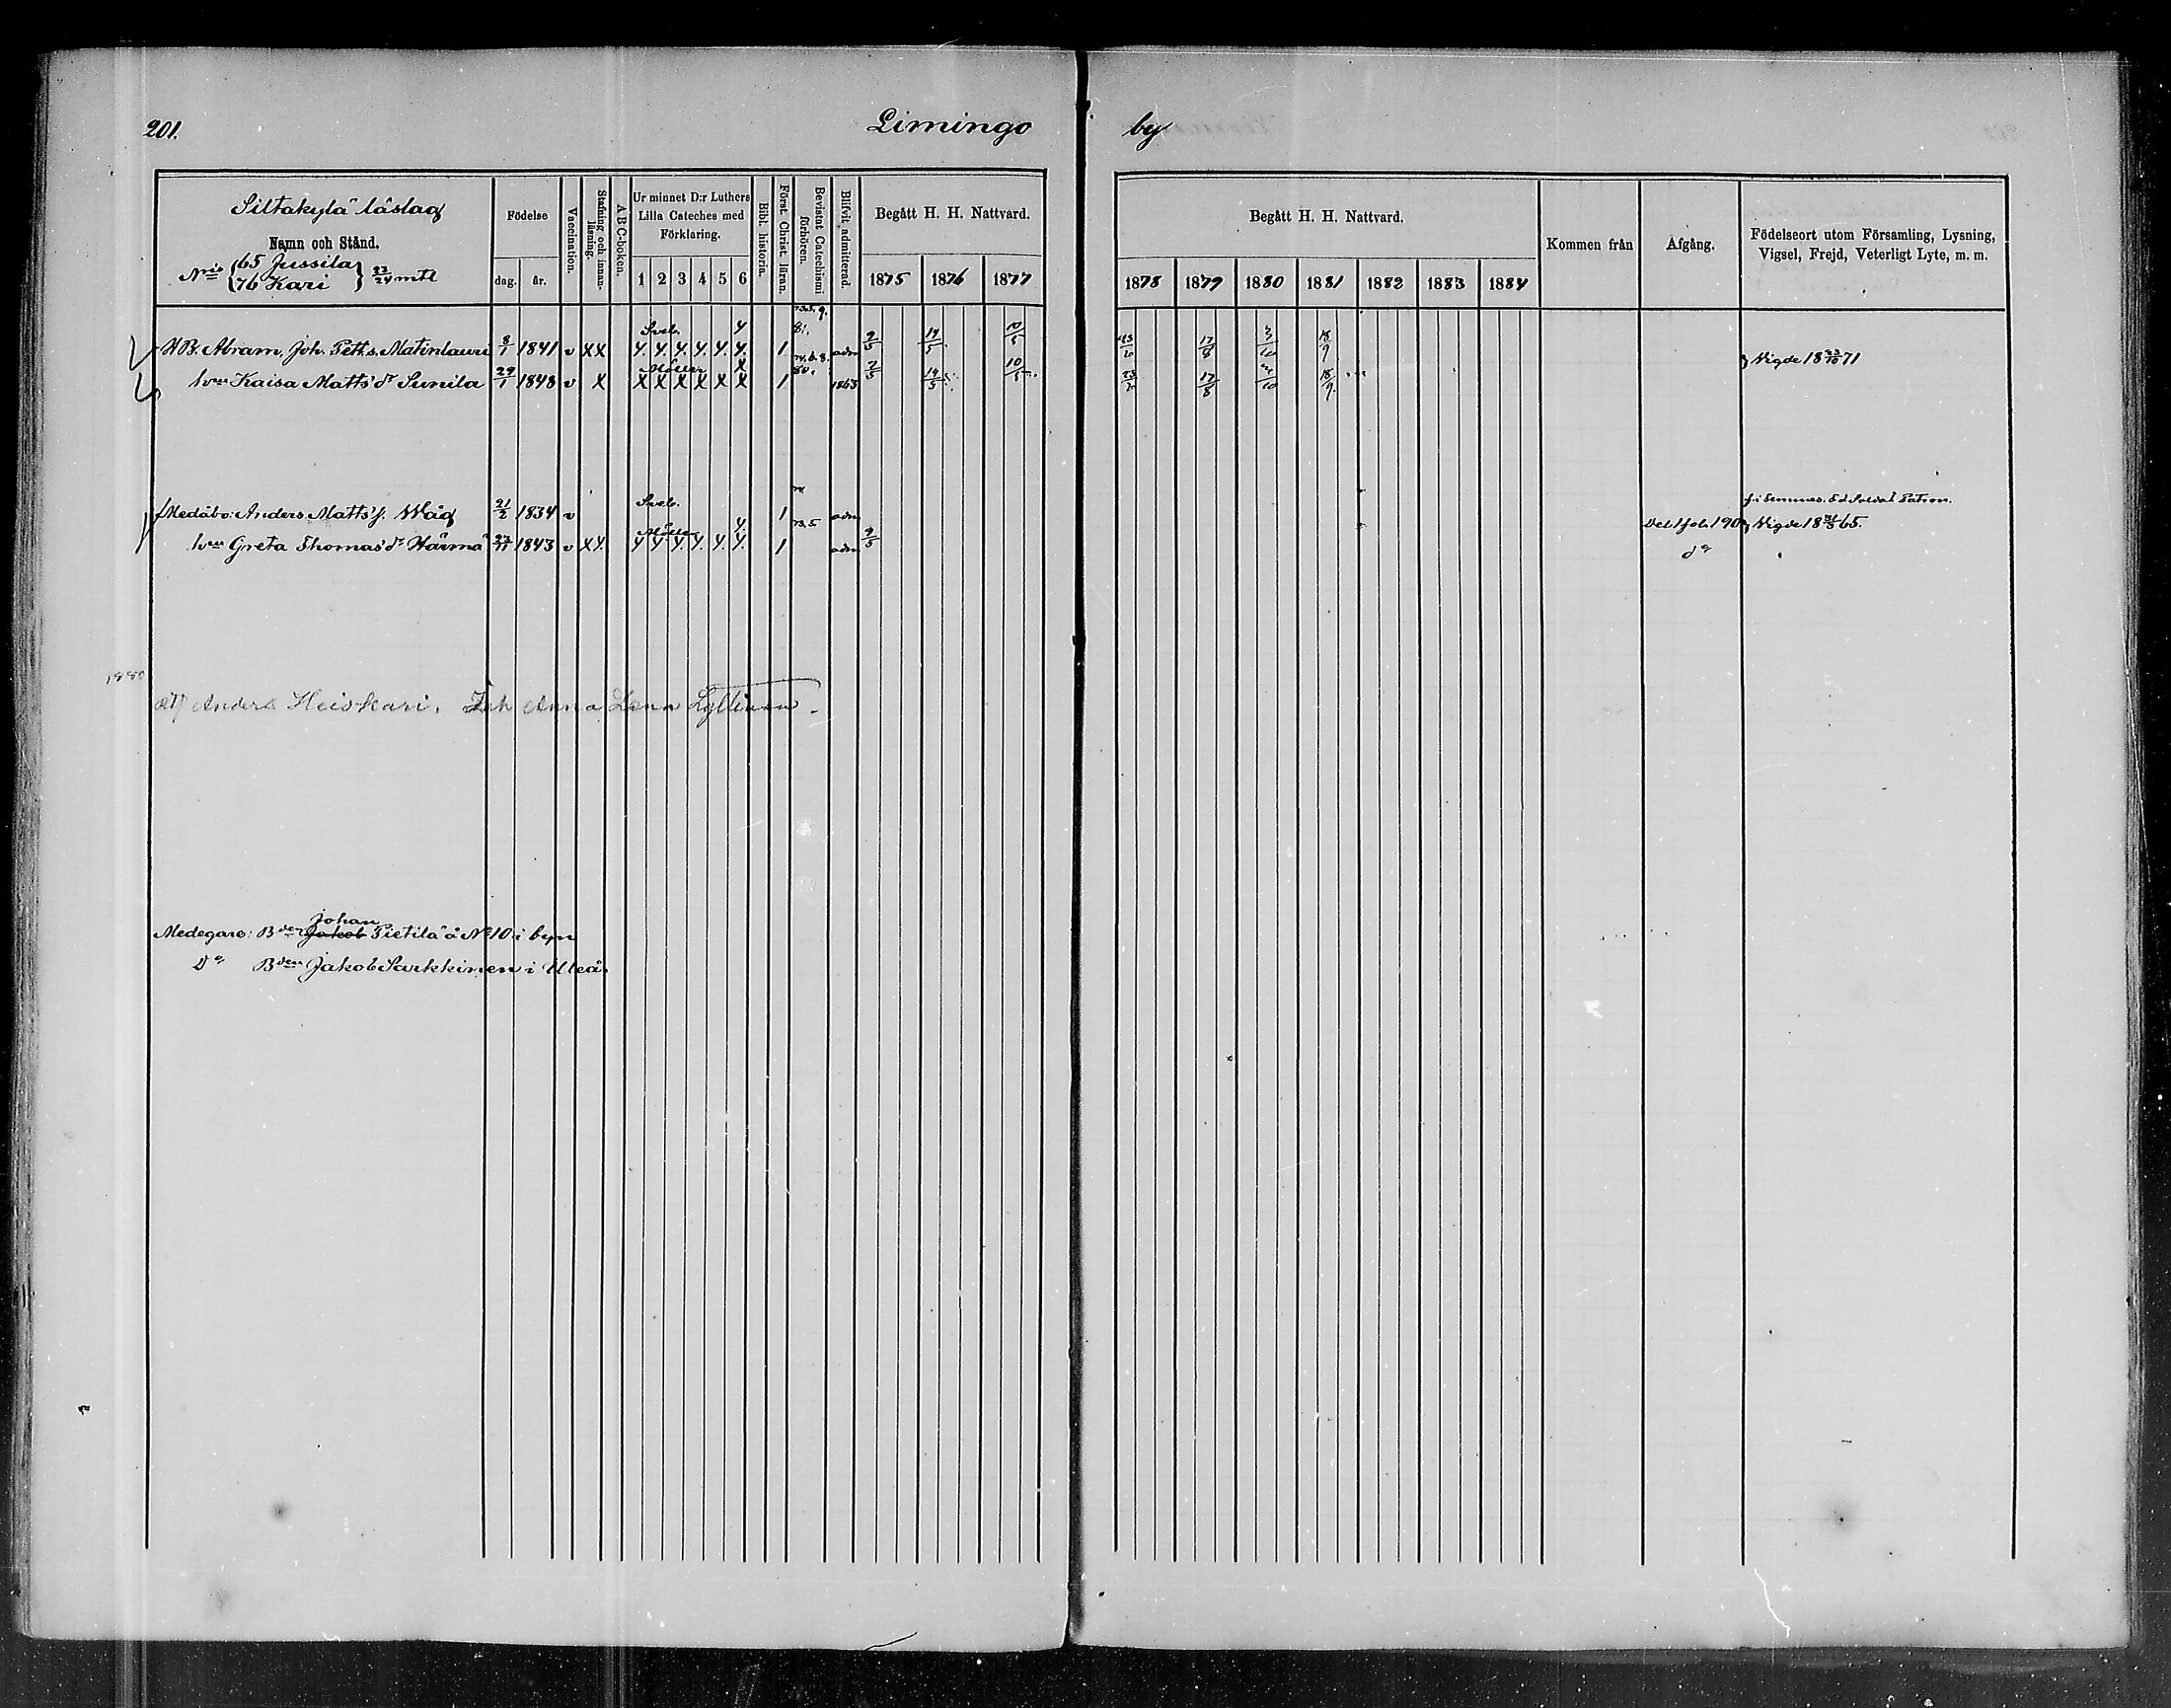 201.
Limingo by
Siltakylä läslag
Namn och Stånd.
N:is {65 Jussila
76 Kari} 23/24 mtl
Födelse
dag. år.
Vaccination.
Stafning och innan-läsning.
A B C-boken.
Ur minnet D:r Luthers
Lilla Cateches med
Förklaring.
1 2 3 4 5 6
Bibl. historia.
Först. Christ. läran.
Bevistat Catechismi förhören.
Blifvit admitterad.
Begått H. H. Nattvard.
1875 1876 1877
Begått H. H. Nattvard.
1878 1879 1880 1881 1882 1883 1884
Kommen från
Afgång.
Födelseort utom Församling, Lysning,
Vigsel, Frejd, Veterligt Lyte, m. m.
Sveb. 4 81.
Abram Joh. Pett.s. Matinlauri 8/1 1841 v X X 4. 4. 4. 4. 4. 4. 1 adm 9/5 14/5 10/5 17/8 3/10 18/9
Möller X 80. } Vigde 18 23/10 71
hvn Kaisa Matts dr Sunila 29/1 1848 v X X X X X X X 1 1863 14/5 10/5 23/6 17/8 18/9
Sveb. f. i Temmes. Fd Soldat
Medåbo: Anders Matts s. Wåg 21/2 1834 v 1 adm
Möller 4. 73.5 9/5 } Vigde 18 65.
hvn Greta Thomas dr Härmä 1843 v X 4. 4 4 4. 4. 4. 4. 1 adm do
1880
Anders Heiskari. Anna Lena
Johan
Medegare: Bden Jakob Pietilä å No 10 i byn
Do Bden Jakob Sarkkinen i Uleå